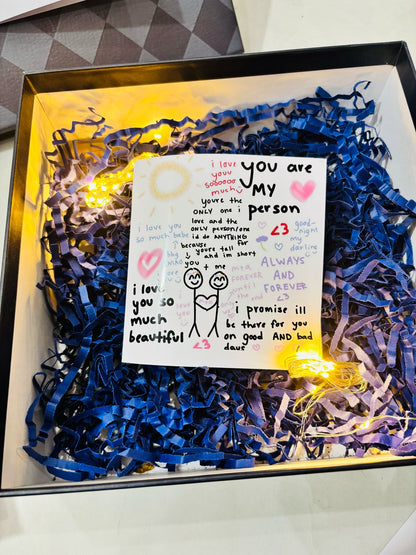 i love
youu
sooooo
much
you are
MY
person
youre the
ONLY one i
love and the
ONLY person/one
id do ANYTHING
for
because
youre tall
and im short
you + me
i love you
so much babe
<3
good-
night
my
darling
ALWAYS
AND
FOREVER
<3
FOREVER
until
the end
i love
you so
much
beautiful
<3
i promise ill
be there for you
on good AND bad
days